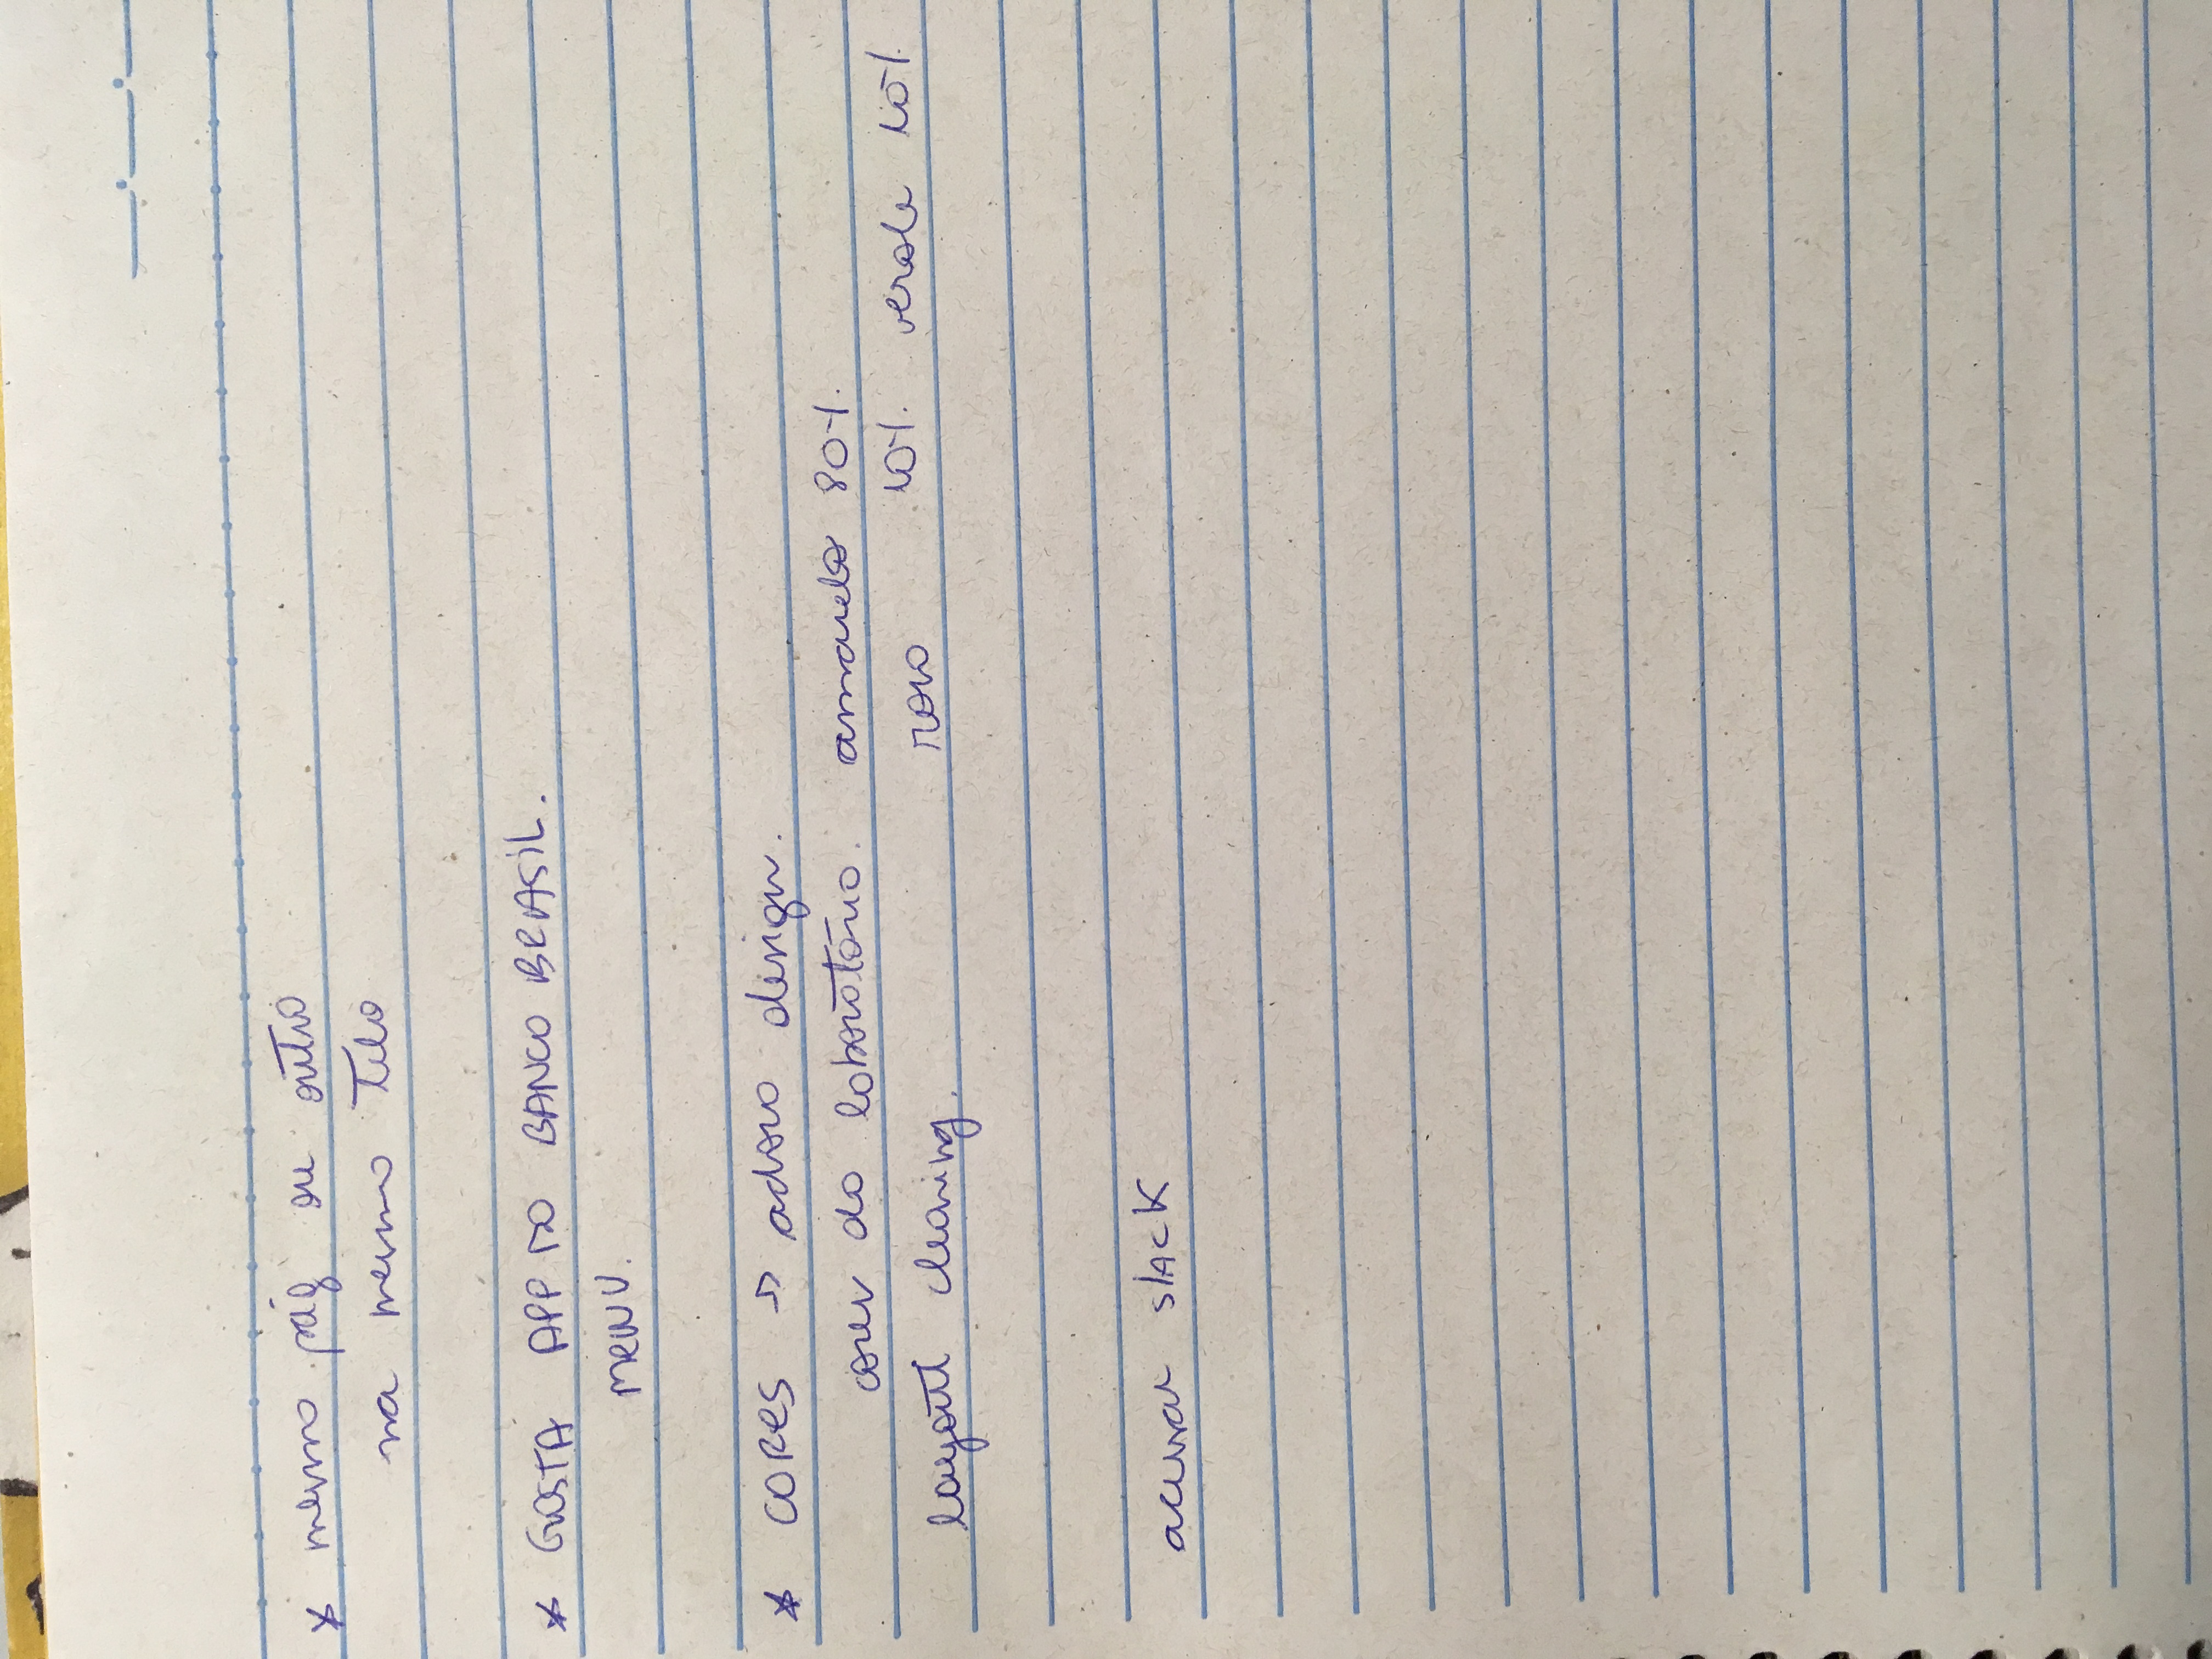 * mesma pág ou outra
na mesma tela
* GOSTA APP DO BANCO BRASIL.
MENU.
* CORES → adoro design.
cores do laboratório. amarelo 80%.
layout cleaning. roxo 10%. verde 10%.
acessar slack